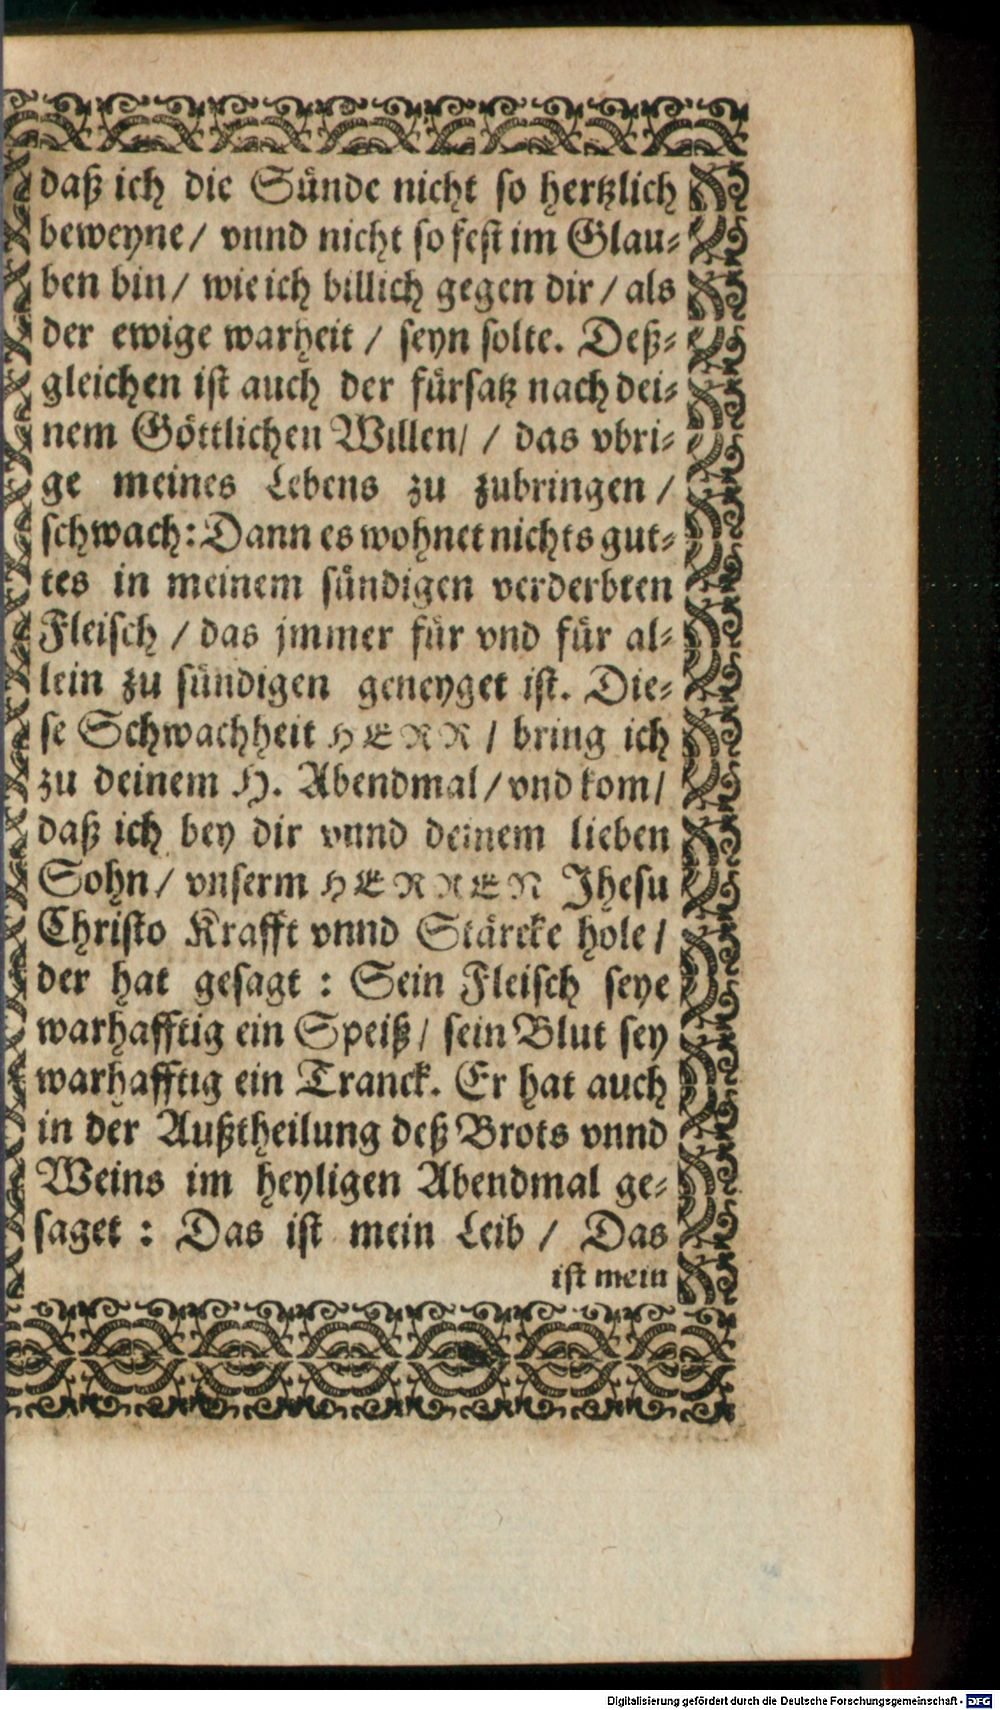 daß ich die Sünde nicht so hertzlich
beweyne / vnnd nicht so fest im Glau-
ben bin / wie ich billich gegen dir / als
der ewige warheit / seyn solte. Deß-
gleichen ist auch der fürsatz nach dei-
nem Göttlichen Willen / / das vbri-
ge meines Lebens zu zubringen /
schwach: Dann es wohnet nichts gut-
tes in meinem sündigen verderbten
Fleisch / das jmmer für vnd für al-
lein zu sündigen geneyget ist. Die-
se Schwachheit HERR / bring ich
zu deinem H. Abendmal / vnd kom /
daß ich bey dir vnnd deinem lieben
Sohn / vnserm HERREN Jhesu
Christo Krafft vnnd Stärcke hole /
der hat gesagt : Sein Fleisch seye
warhafftig ein Speiß / sein Blut sey
warhafftig ein Tranck. Er hat auch
in der Außtheilung deß Brots vnnd
Weins im heyligen Abendmal ge-
saget : Das ist mein Leib / Das
ist mein
Digitalisierung gefördert durch die Deutsche Forschungsgemeinschaft - DFG